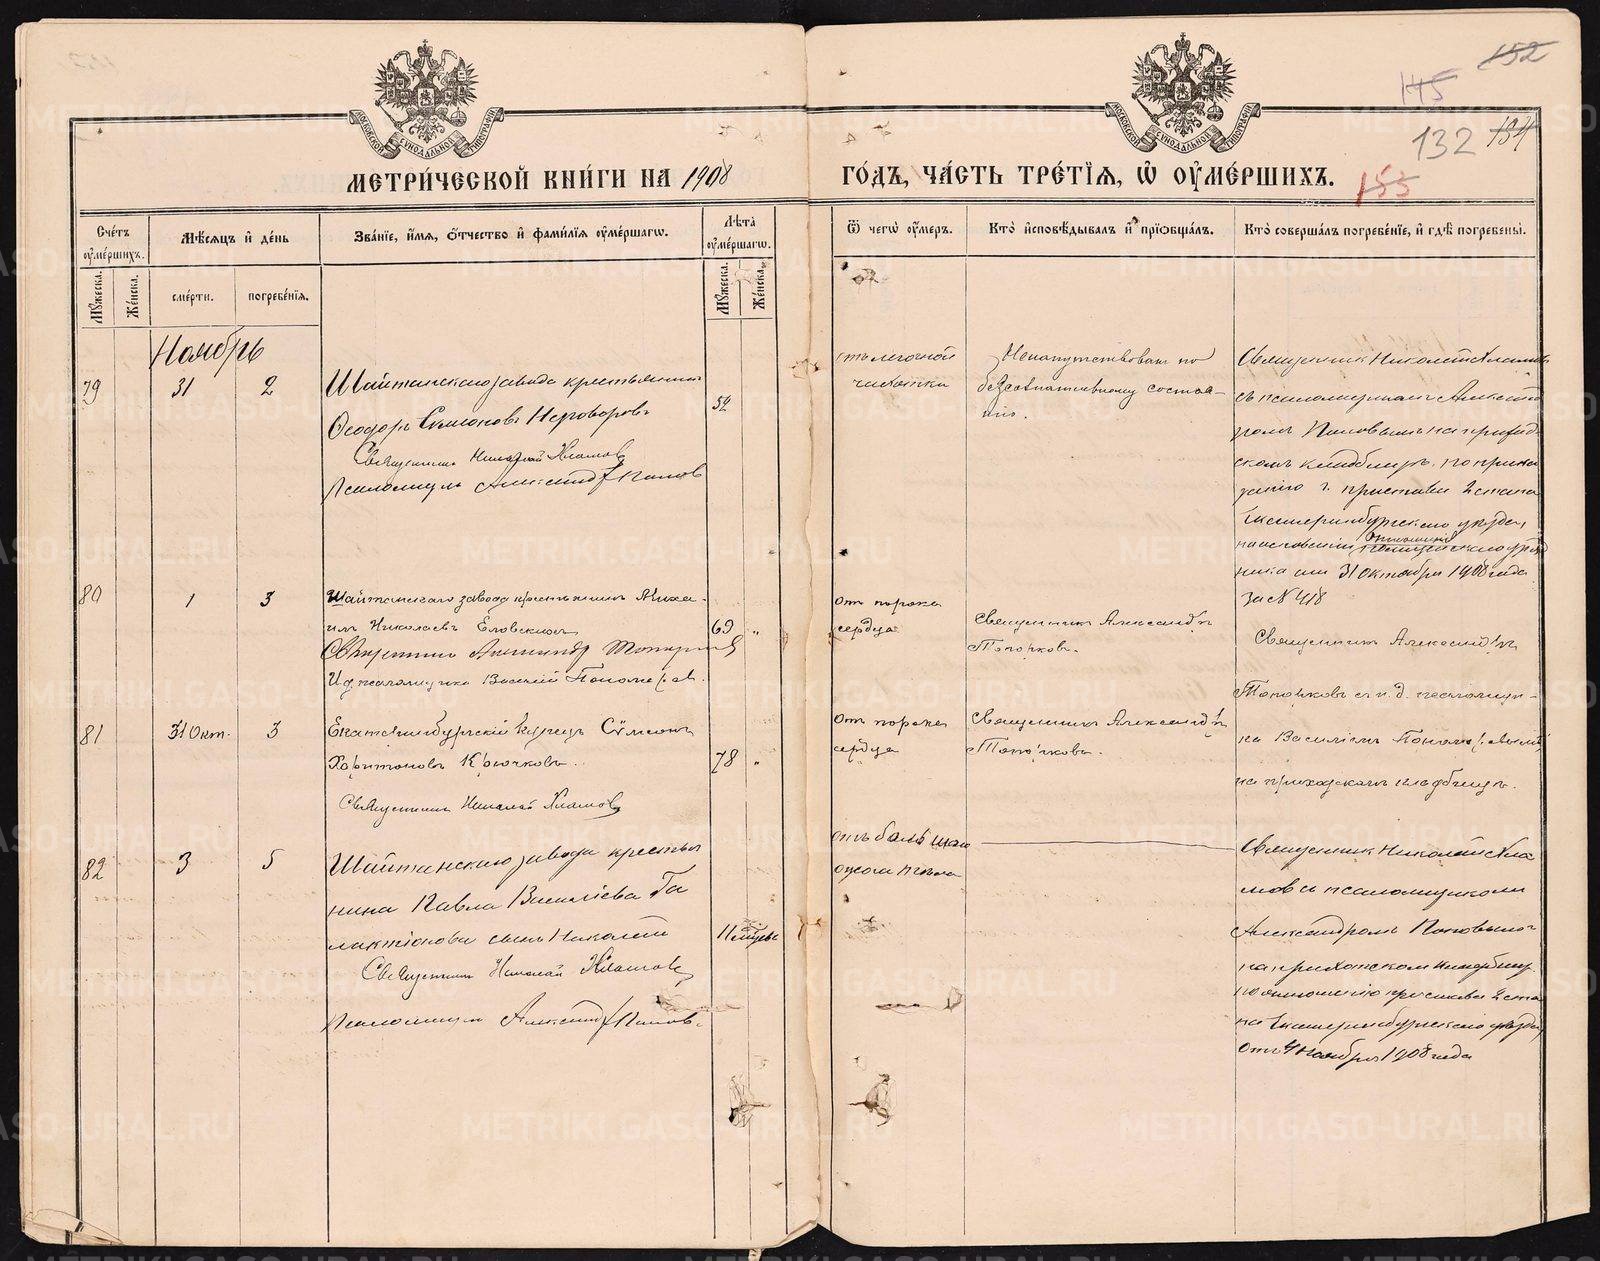 152
145
132 134
155
МЕТРИ́ЧЕСКОЙ КНИ́ГИ НА 1908
ГО́ДЪ, ЧА́СТЬ ТРЕ́ТЇѦ, Ѽ ОУ҆МЕ́РШИХЪ.
Сче́тъ оу҆ме́ршихъ.
Мѣ́сѧцъ и҆ де́нь
Зва́нїе, и҆́мѧ, ѻ҆́тчество и҆ фами́лїѧ оу҆ме́ршагѡ.
Лѣ́та оу҆ме́ршагѡ.
Ѿ чегѡ̀ оу҆́меръ.
Кто̀ и҆сповѣ́дывалъ и҆ прїѡбща́лъ.
Кто̀ соверша́лъ погребе́нїе, и҆ гдѣ̀ погребены̀.
Мꙋ́жеска.
Же́нска.
сме́рти.
погребе́нїѧ.
Мꙋ́жеска.
Же́нска.
Ноябрь
79
31
2
Шайтанскаго завода крестьянин
Ѳеодоръ Сѵмеоновъ
Священникъ Николай Хламов
Псаломщикъ Александръ Попов
52
отъ легочной
чахотки
Ненапутствован по
безсознательному состоя-
нію.
Священникъ Николай Хламовъ
съ псаломщикомъ Александ
ромъ Поповымъ на приход-
скомъ кладбищѣ, по прика
занію г. пристава 2 стана
Екатеринбургскаго уѣзда,
на основаніи отношенія полицейскаго уряд
ника отъ 31 октября 1908 года
за № 418
80
1
3
Шайтанскаго завода крестьянинъ Миха-
илъ Николаевъ Еловскихъ
Священникъ Александръ Топорковъ
И д псаломщика Василій Пономарев.
69 "
отъ порока
сердца
священникъ Александръ
Топорковъ.
Священникъ Александръ
Топорковъ съ и. д. псаломщи-
ка Василіемъ Пономаревымъ
на приходскомъ кладбищѣ.
81
31 Окт.
3
Екатеринбургскій купецъ Сѵмеонъ
Харитоновъ Крючковъ.
Священникъ Николай Хламовъ
78 "
отъ порока
сердца
священникъ Александръ
Топорковъ.
82
3
5
Шайтанскаго завода крестья
нина Павла Василіева Га
лактіонова сынъ Николай
Священникъ Николай Хламовъ
Псаломщикъ Александръ Попов.
11 мѣсяц
отъ большаго
ожога
Священникъ Николай Хла
мовъ съ псаломщикомъ
Александромъ Поповымъ
на приходском кладбищѣ
по отношенію пристава 2 ста
на Екатеринбургскаго уѣзда,
отъ 4 ноября 1908 года
METRIKI.GASO-URAL.RU